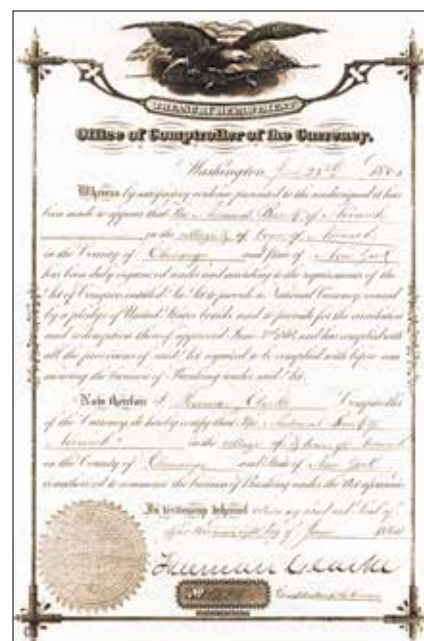 TREASURY DEPARTMENT
Office of Comptroller of the Currency.
Washington, 186
Whereas, by satisfactory evidence presented to the undersigned, it has
been made to appear that The National Bank of Norwich
in the village of Town of Norwich
in the County of Chenango and State of New York
has been duly organized under and according to the requirements of the
Act of Congress entitled "An Act to provide a National Currency secured
by a pledge of United States bonds, and to provide for the circulation
and redemption thereof," approved June 3rd 1864, and has complied with
all the provisions of said Act required to be complied with before com-
mencing the business of Banking under said Act.
Now therefore I, Freeman Clarke Comptroller
of the Currency, do hereby certify that The National Bank of
Norwich in the village of Norwich
in the County of Chenango and State of New York
is authorized to commence the business of Banking under the Act aforesaid.
In testimony whereof witness my hand and seal of
office this day of June
Freeman Clarke
No
Comptroller of the Currency